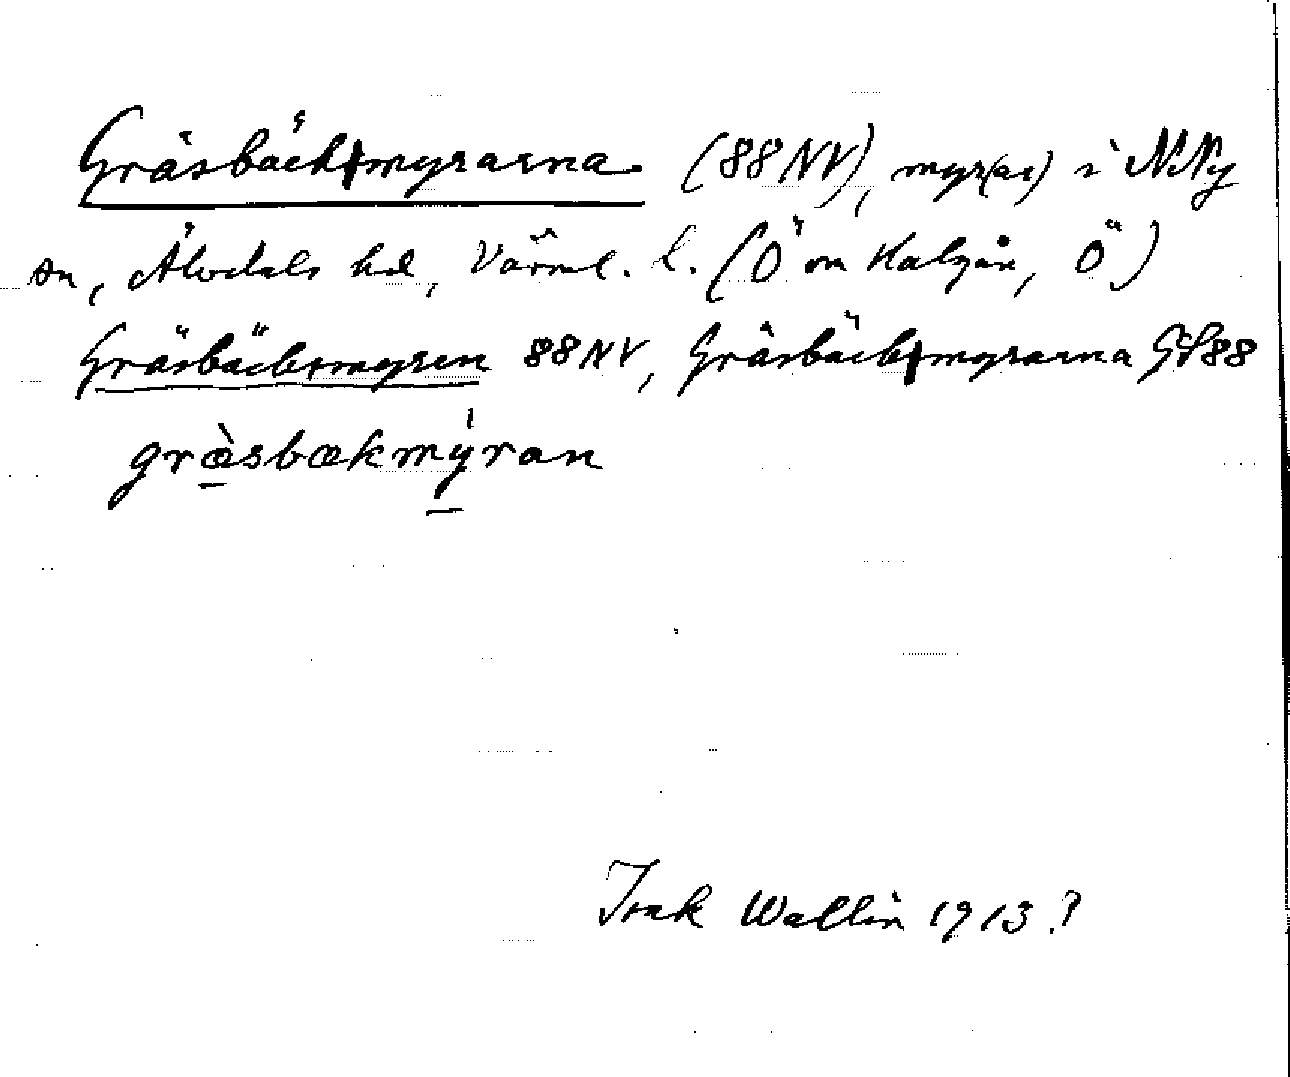 Gräsbäck+myrarna (88NV), myr(ar) i N.Ny
sn, Älvdals hd, Värml. l. (Ö om Kalvån, Ö)
Gräsbäck+myren 88NV, Gräsbäck+myrarna GS88
græ̀sbækmýran
Isak Wallin 1913?